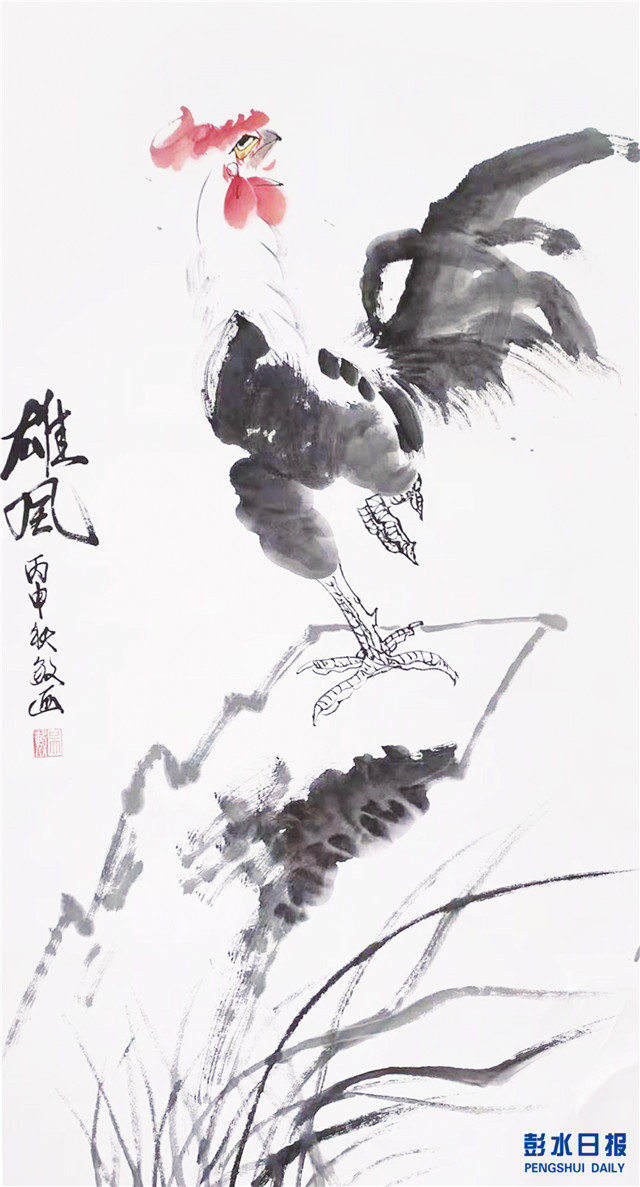 雄风
丙申秋敏画
彭水日报
PENGSHUI DAILY